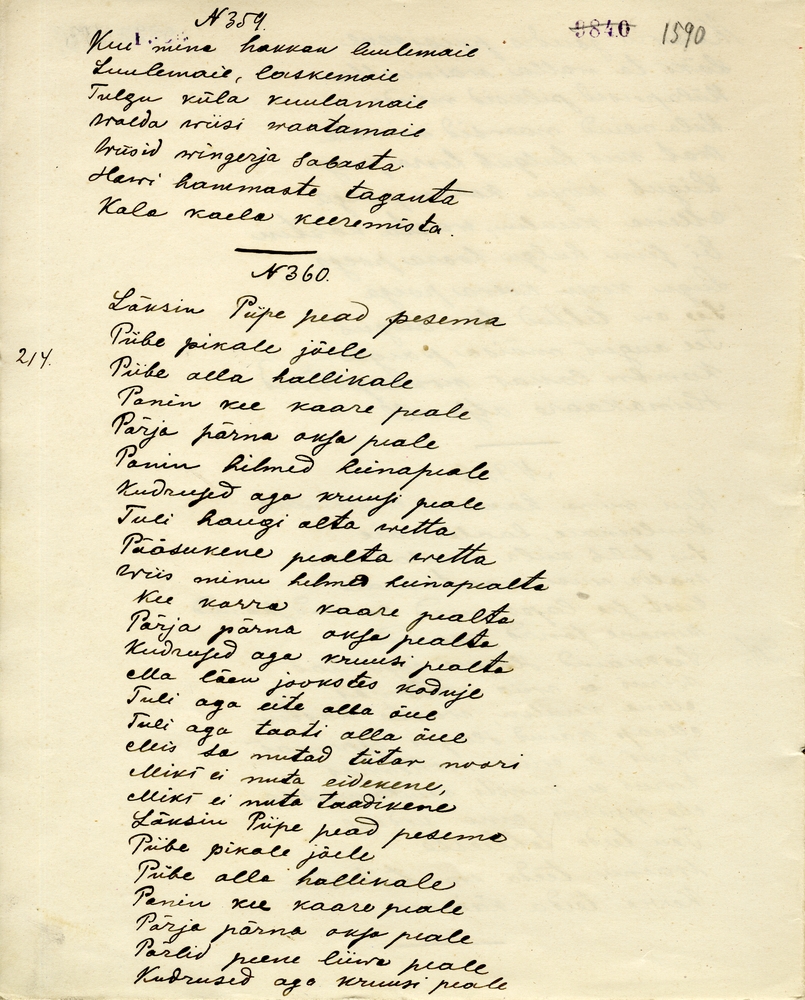 N 359.
9840 1590
Kui mina hakkan luulemaie
Luulemaie, laskemaie
Tulgu küla kuulamaie
Walda wiisi waatamaie
Wiisid wingerja sabasta
Hawi hammaste taganta
Kala kaela keeremista.
N 360.
Läksin Piipe pead pesema
Piibe pikale jõele
214.
Piibe alla hallikale
Panin kee kaare peale
Pärja pärna oksa peale
Panin helmed heinapeale
Kudrused aga kruusi peale
Tuli haugi alta wetta
Pääsukene pealta wetta
Wiis minu helmed heinapealta
Kee karra kaare pealta
Pärja pärna oksa pealta
Kudrused aga kruusi pealta
Ma läen jookstes koduje
Tuli aga eite alla õue
Tuli aga taati alla õue
Mis sa nutad tütar noori
Miks ei nuta eidekene,
Miks ei nuta taadikene
Läksin Piipe pead pesema
Piibe pikale jõele
Piibe alla hallikale
Panin kee kaare peale
Pärja pärna oksa peale
Pärlid peene liiwa peale
Kudrused aga kruusi peale